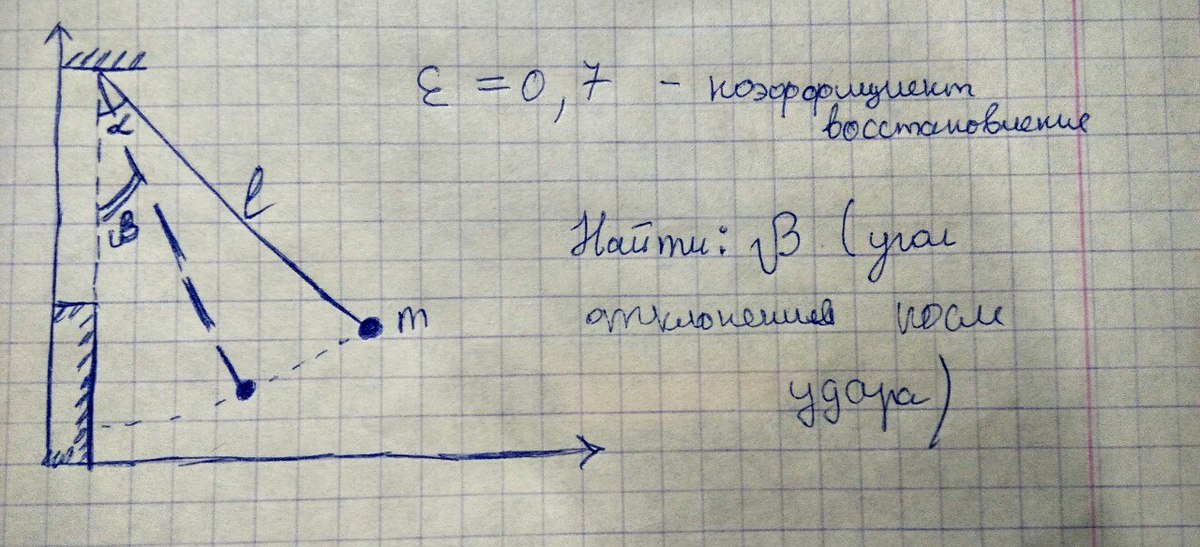 ε = 0,7 - коэффициент
восстановление
α
l
β
Найти: β (угол
m
отклонения после
удара)